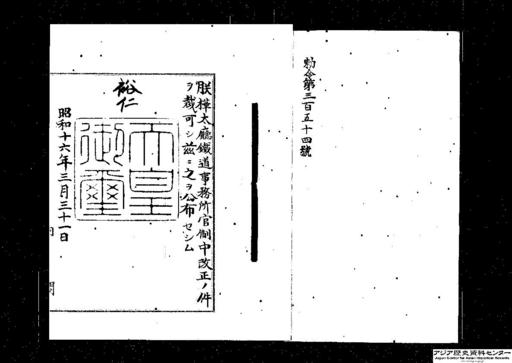 勅令第三百五十四號
朕樺太廳鐵道事務所官制中改正ノ件
ヲ裁可シ茲ニ之ヲ公布セシム
裕仁
天皇御璽
昭和十六年三月三十一日
アジア歴史資料センター
Japan Center for Asian Historical Records